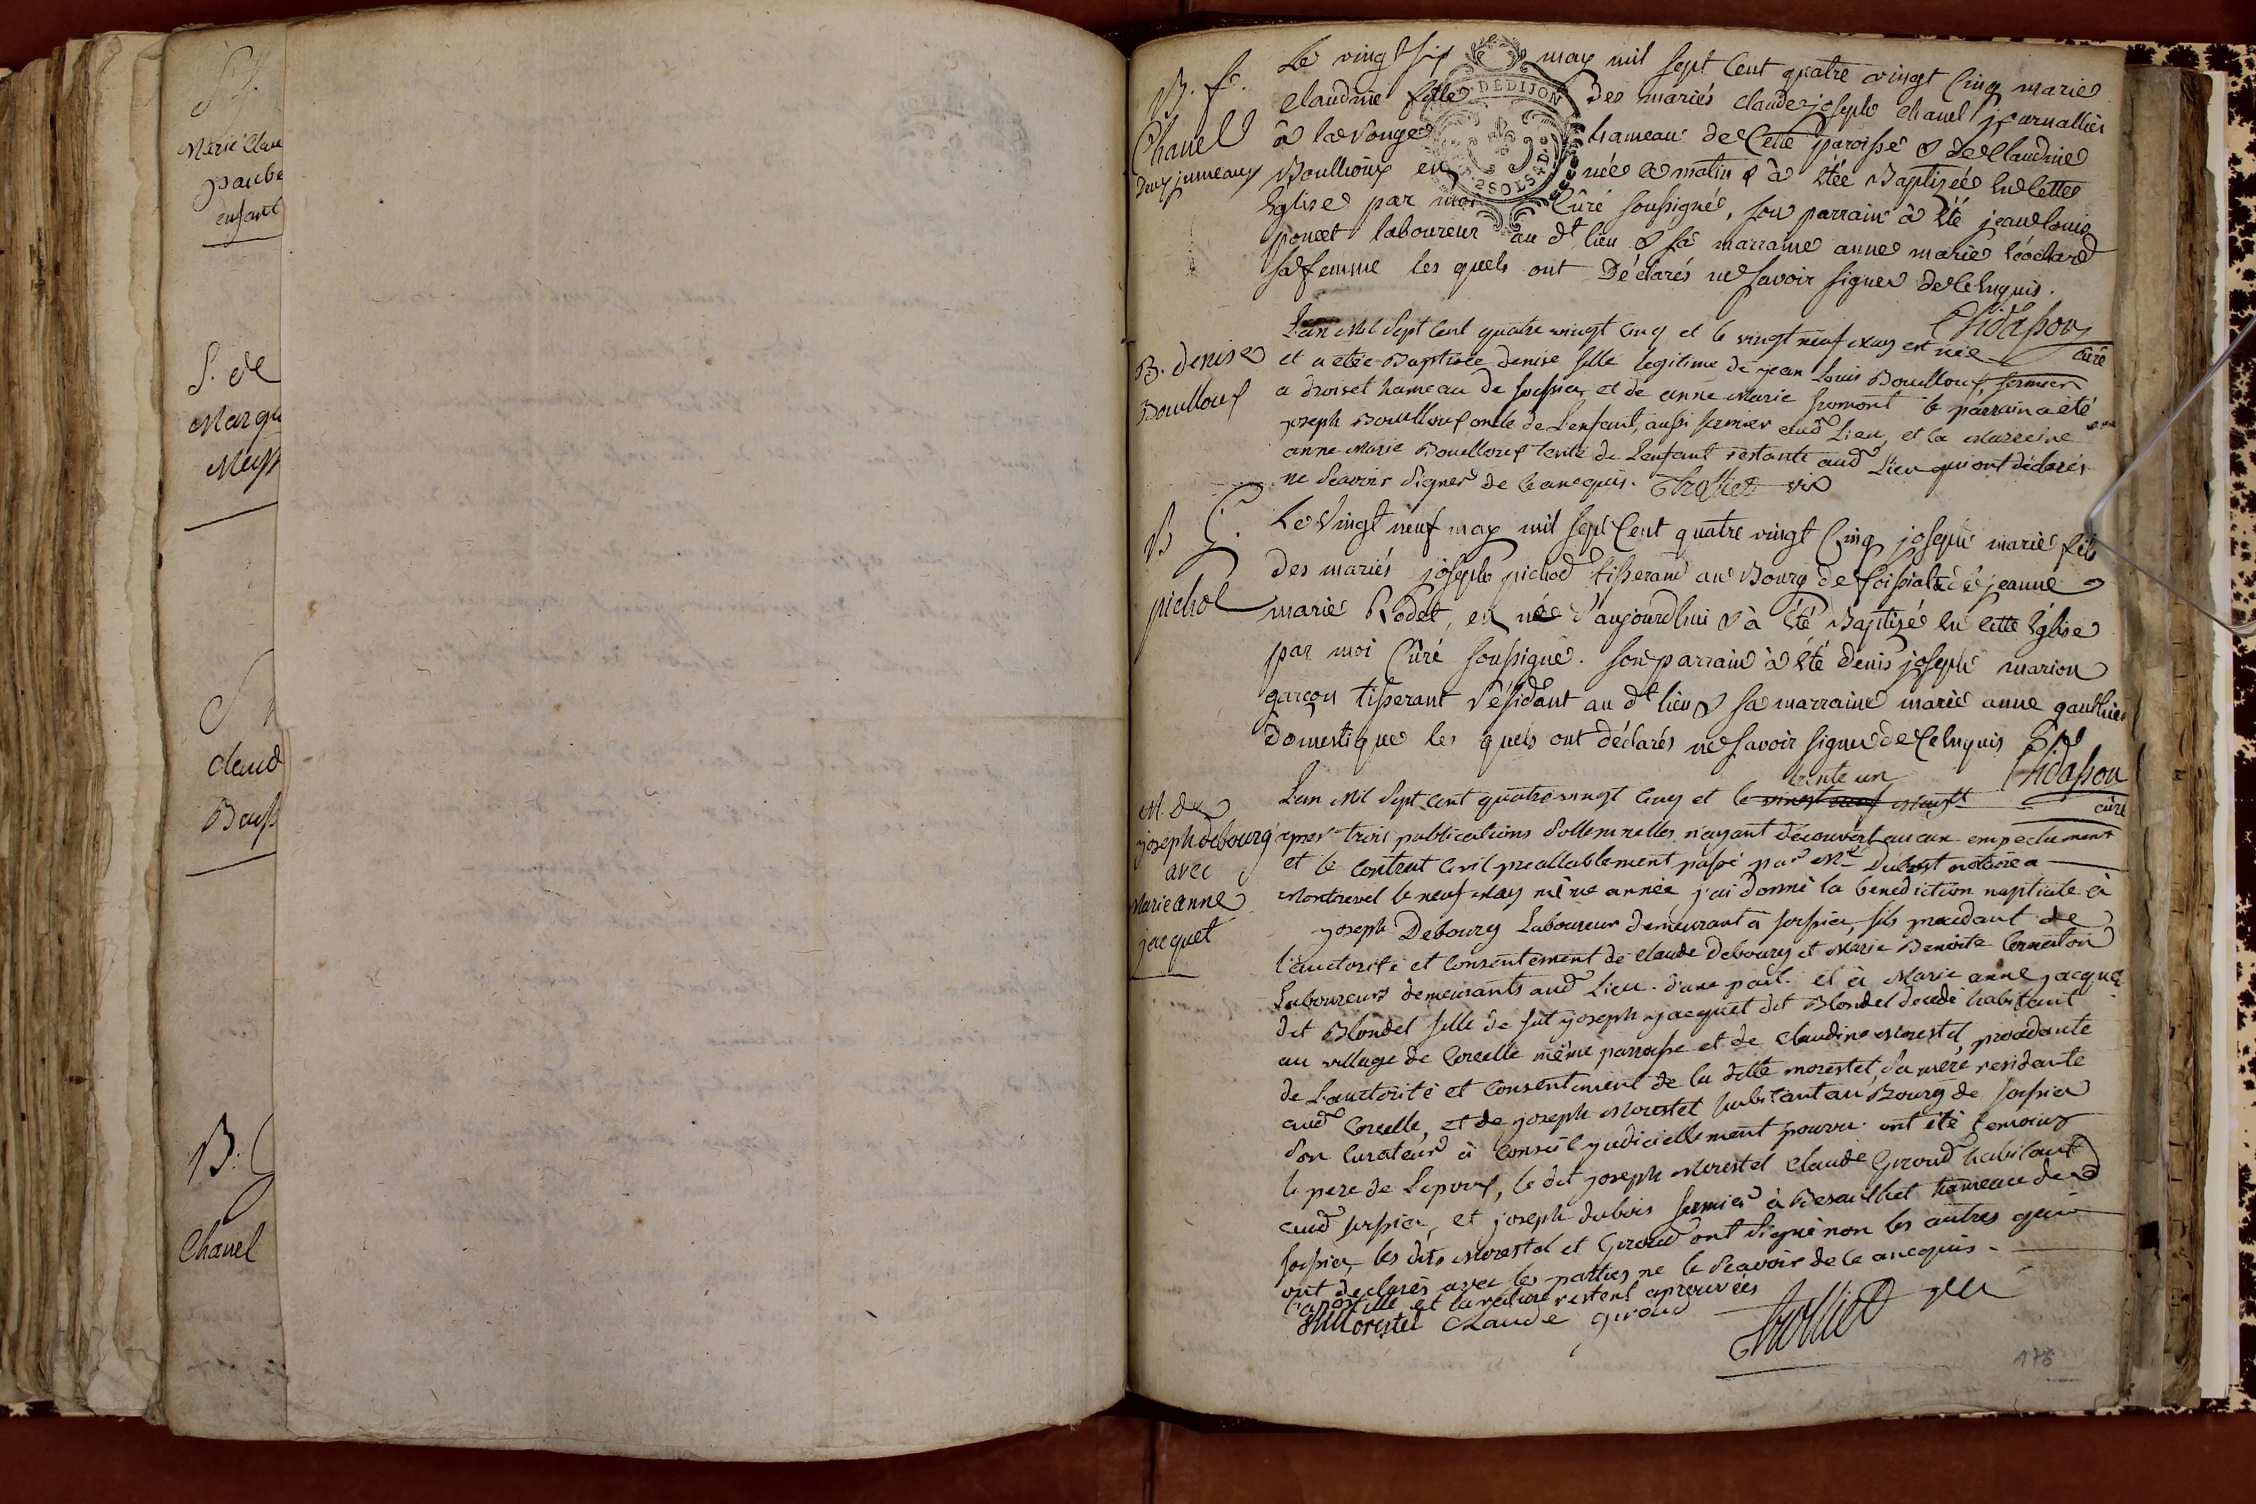 Marie Clau
enfant
S. de
Margu
Claud
B.
Chanel
B. f.
Chanel
deux jumeaux
Le vingt six may mil sept Cent quatre vingt Cinq marie
Claudine fille des mariés claude joseph chanel journallier
à la Vouge hameau de Cette paroisse & de Claudine
Boullioux née Ce matin & à été Baptizée En Cette
Eglise par moi Curé soussigné, son parrain à été jean louis
poncet laboureur au dt lieu & sa marraine anne marie
sa femme les quels ont Déclarés ne savoir signer de Ce Enquis.
Chidasson
curé
GEN. DE DIJON
2 SOLS 4 D.
B. denise
Boulloux
L'an Mil Sept Cent quatre vingt Cinq et le vingt neuf May est née
et a etée Baptisée denise fille legitime de jean Louis Boulloux fermier
a Broiset hameau de foissia, et de anne Marie fromont le parrain a été
joseph Boulloux oncle de L'enfant, aussi fermier aud Lieu, et la Marreine
anne Marie Boulloux tante de L'enfant restante aud Lieu qui ont déclarés
ne Scavoir Signer de Ce ancquis. Thollied vic
B G.
pichod
Le Vingt neuf may mil sept Cent quatre vingt Cinq joseph marie fils
des mariés joseph pichod tisserand au Bourg de foissiat & de jeanne
marie Rodet, est né d'aujourdhui & à été Baptizé En Cette Eglise
par moi Curé soussigné. son parrain à été denis joseph marion
garçon tisserant Résidant au dt lieu & sa marraine marie anne gauthier
domestique les quels ont déclarés ne savoir signer de Ce Enquis
Chidasson
curé
M. de
joseph debourg
avec
Marie anne
jacquet
L'an Mil Sept Cent quatre vingt Cinq et le vingt neuf trente un May
apres trois publications Sollemnelles n'ayant découvert aucun empechement
et le Contrat Civil preallablement passé par Me Dubost notaire a
Montrevel le neuf May même année, j'ai donné la benediction nuptiale à
joseph Debourg Laboureur demeurant à foissia, fils procedant de
l'auctorité et Consentement de Claude Debourg et Marie Benoite Cormaton
Laboureurs demeurants aud Lieu. d'une part. et à Marie anne jacquet
dit Blondel fille de fut joseph jacquet dit Blondel decedé habitant
au village de Corcelle même parroisse et de Claudine Morestel, procedante
de L'auctorité et Consentement de la ditte morestel, Sa mere residante
aud Corcelle, et de joseph Morestel habitant au Bourg de foissia
Son Curateur à Conseil judiciellement pourvu. ont été temoins
le pere de L'epoux, le dit joseph Morestel Claude Giroud habitant
aud foissia, et joseph dubois fermier à hameau de
foissia, les dits Morestel et Giroud ont Signé non les autres qui
ont declarés avec les parties ne le Scavoir de Ce ancquis.
L'apostille et la rature restent aprouvées
Morestel Claude giroud
Thollied vic
178